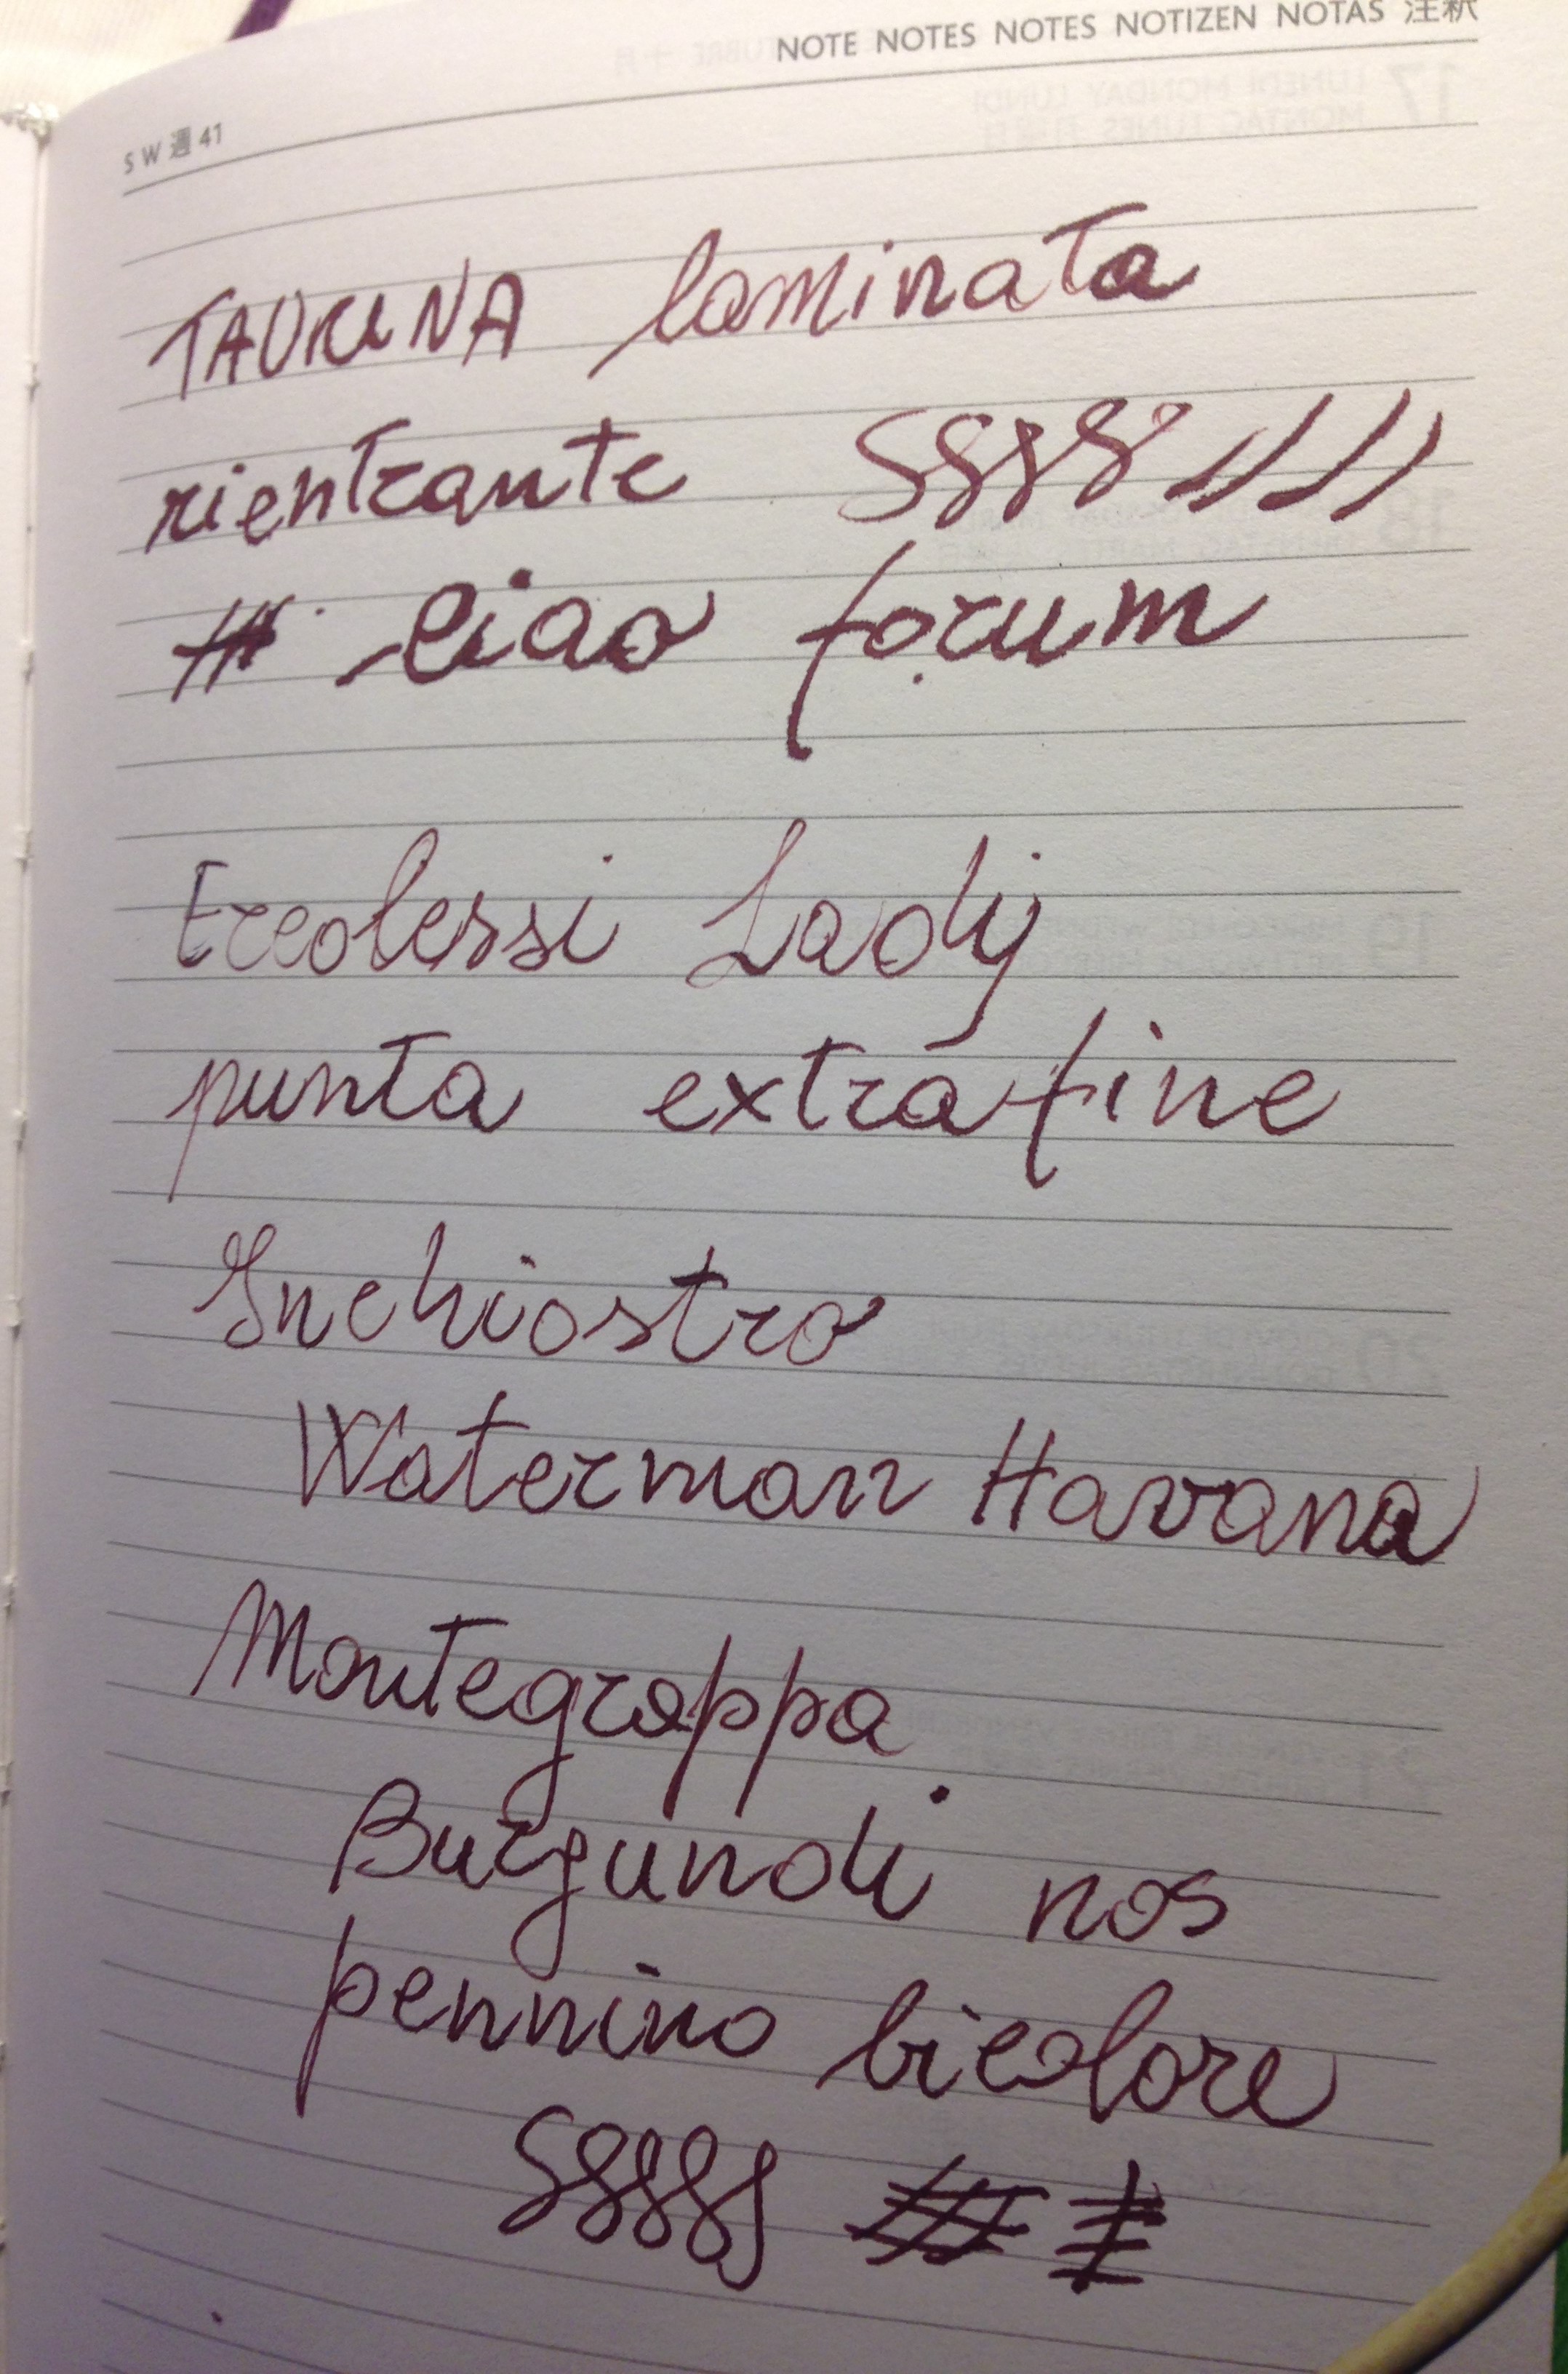 NOTE NOTES NOTES NOTIZEN NOTAS 注釈
S W 週 41
TAURINA laminata
rientrante SSSSS
# Ciao forum
Ercolessi Lady
punta extrafine
Inchiostro
Waterman Havana
Montegrappa
Burgundi nos
pennino bicolore
SSSSS #